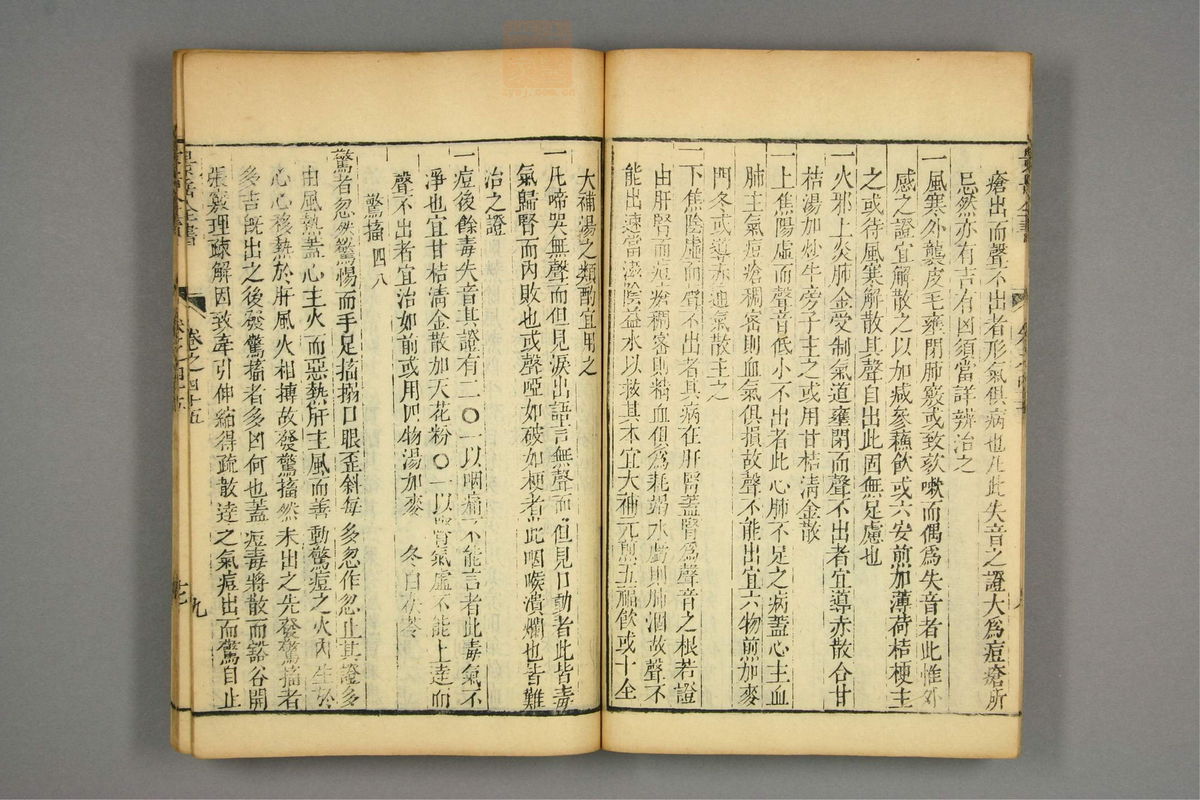 瘡出而聲不出者形氣俱病也凡此失音之證大爲痘瘡所
忌然亦有吉有凶須當詳辨治之
一風寒外襲皮毛壅閉肺竅或致欬嗽而偶爲失音者此惟外
感之證宜解散之以加減參蘇飲或六安煎加薄荷桔梗主
之或待風寒解散其聲自出此固無足慮也
一火邪上炎肺金受制氣道壅閉而聲不出者宜導赤散合甘
桔湯加炒牛旁子主之或用甘桔清金散
一上焦陽虛而聲音低小不出者此心肺不足之病蓋心主血
肺主氣痘瘡稠密則血氣俱損故聲不能出宜六物煎加麥
門冬或導赤通氣散主之
一下焦陰虛而聲不出者其病在肝腎蓋腎爲聲音之根若證
由肝腎而痘瘡稠密則精血俱爲耗竭水虧則肺涸故聲不
能出速當滋陰益水以救其本宜大補元煎五福飲或十全
大補湯之類酌宜用之
一凡啼哭無聲而但見淚出語言無聲而但見口動者此皆毒
氣歸腎而內敗也或聲啞如破如梗者此咽喉潰爛也皆難
治之證
一痘後餘毒失音其證有二〇一以咽痛不能言者此毒氣不
淨也宜甘桔清金散加天花粉〇一以腎氣虛不能上達而
聲不出者宜治如前或用四物湯加麥 冬白茯苓
驚搐 四八
驚者忽然驚惕而手足搐搦口眼歪斜每多忽作忽止其證多
由風熱蓋心主火而惡熱肝主風而善動驚痘之火內生於
心心移熱於肝風火相搏故發驚搐然未出之先發驚搐者
多吉既出之後發驚搐者多凶何也蓋痘毒將散而谿谷開
張竅理疎解因致牽引伸縮得疏散達之氣痘出而驚自止
卷之四十五
九